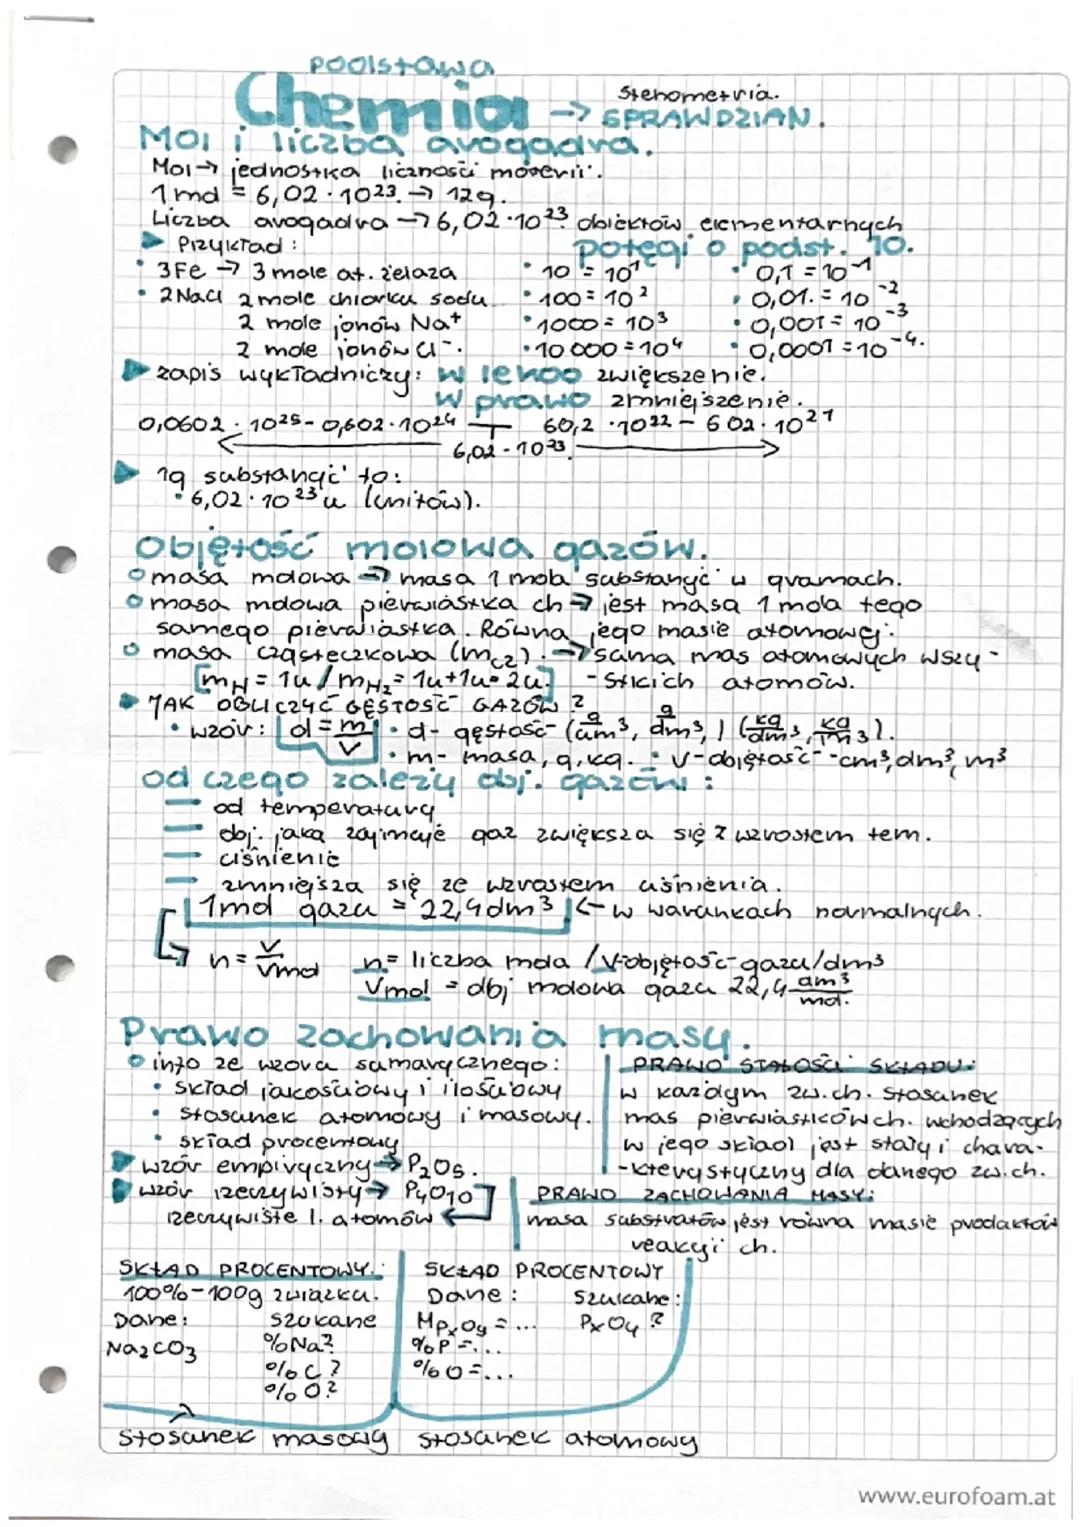 podstawa
Chemia → stechiometria.
SPRAWDZIAN.
Mol i liczba avogadra.
Mol → jednostka liczności materii.
1 mol = 6,02 · 10²³. → 12g.
Liczba avogadra → 6,02 · 10²³ obiektów elementarnych
Przykład:
potęgi o podst. 10.
• 3Fe → 3 mole at. żelaza
• 10 = 10¹
• 0,1 = 10⁻¹
• 2NaCl 2 mole chlorku sodu
• 100 = 10²
• 0,01. = 10⁻²
2 mole jonów Na⁺
• 1000 = 10³
• 0,001 = 10⁻³
2 mole jonów Cl⁻.
• 10 000 = 10⁴
• 0,0001 = 10⁻⁴.
zapis wykładniczy: w lewo zwiększenie.
w prawo zmniejszenie.
0,0602 · 10²⁵ - 0,602 · 10²⁴ 60,2 · 10²² - 602 · 10²¹
6,02 · 10²³
1g substancji to:
• 6,02 · 10²³ u (unitów).
Objętość molowa gazów.
masa molowa → masa 1 mola substancji w gramach.
masa molowa pierwiastka ch → jest masą 1 mola tego
samego pierwiastka. Równa jego masie atomowej.
masa cząsteczkowa (m_cz). → suma mas atomowych wszy-
[m_H = 1u / m_H₂ = 1u+1u=2u.] -stkich atomów.
JAK OBLICZYĆ GĘSTOŚĆ GAZÓW?
• wzór: d = m/V • d - gęstość - (g/cm³, g/dm³, ) (kg/dm³, kg/m³).
• m - masa, g, kg. • V - objętość - cm³, dm³, m³
od czego zależy obj. gazów:
— od temperatury
— obj. jaką zajmuje gaz zwiększa się z wzrostem tem.
— ciśnienie
— zmniejsza się ze wzrostem ciśnienia.
1 mol gazu = 22,4 dm³ ← w warunkach normalnych.
n = V/Vmol n = liczba mola / V-objętość-gazu/dm³
Vmol = obj molowa gazu 22,4 dm³/mol.
Prawo zachowania masy.
info ze wzoru sumarycznego:
• skład jakościowy i ilościowy
• stosunek atomowy i masowy.
• skład procentowy
wzór empiryczny → P₂O₅.
wzór rzeczywisty → P₄O₁₀
rzeczywiste l. atomów
PRAWO STAŁOŚCI SKŁADU:
w każdym zw. ch. stosunek
mas pierwiastków ch. wchodzących
w jego skład jest stały i chara-
-kterystyczny dla danego zw. ch.
PRAWO ZACHOWANIA MASY:
masa substratów jest równa masie produktów
reakcji ch.
SKŁAD PROCENTOWY:
100% - 100g związku.
Dane: Szukane
Na₂CO₃ %Na?
%C?
%O?
stosunek masowy
SKŁAD PROCENTOWY
Dane: Szukane:
MPₓOᵧ = ... PₓOᵧ?
%P = ...
%O = ...
stosunek atomowy
www.eurofoam.at